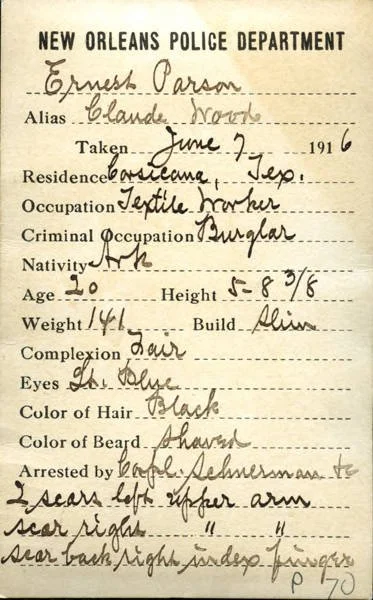 NEW ORLEANS POLICE DEPARTMENT
Ernest Parson
Alias Claude Wood
Taken June 7 1916
Residence Corsicana, Tex.
Occupation Textile Worker
Criminal Occupation Burglar
Nativity Ark
Age 20 Height 5-8 3/8
Weight 141 Build Slim
Complexion Fair
Eyes Lt. Blue
Color of Hair Black
Color of Beard Shaved
Arrested by Capt. Schnerman &c
2 scars left upper arm
scar right " "
scar back right index finger
P 70